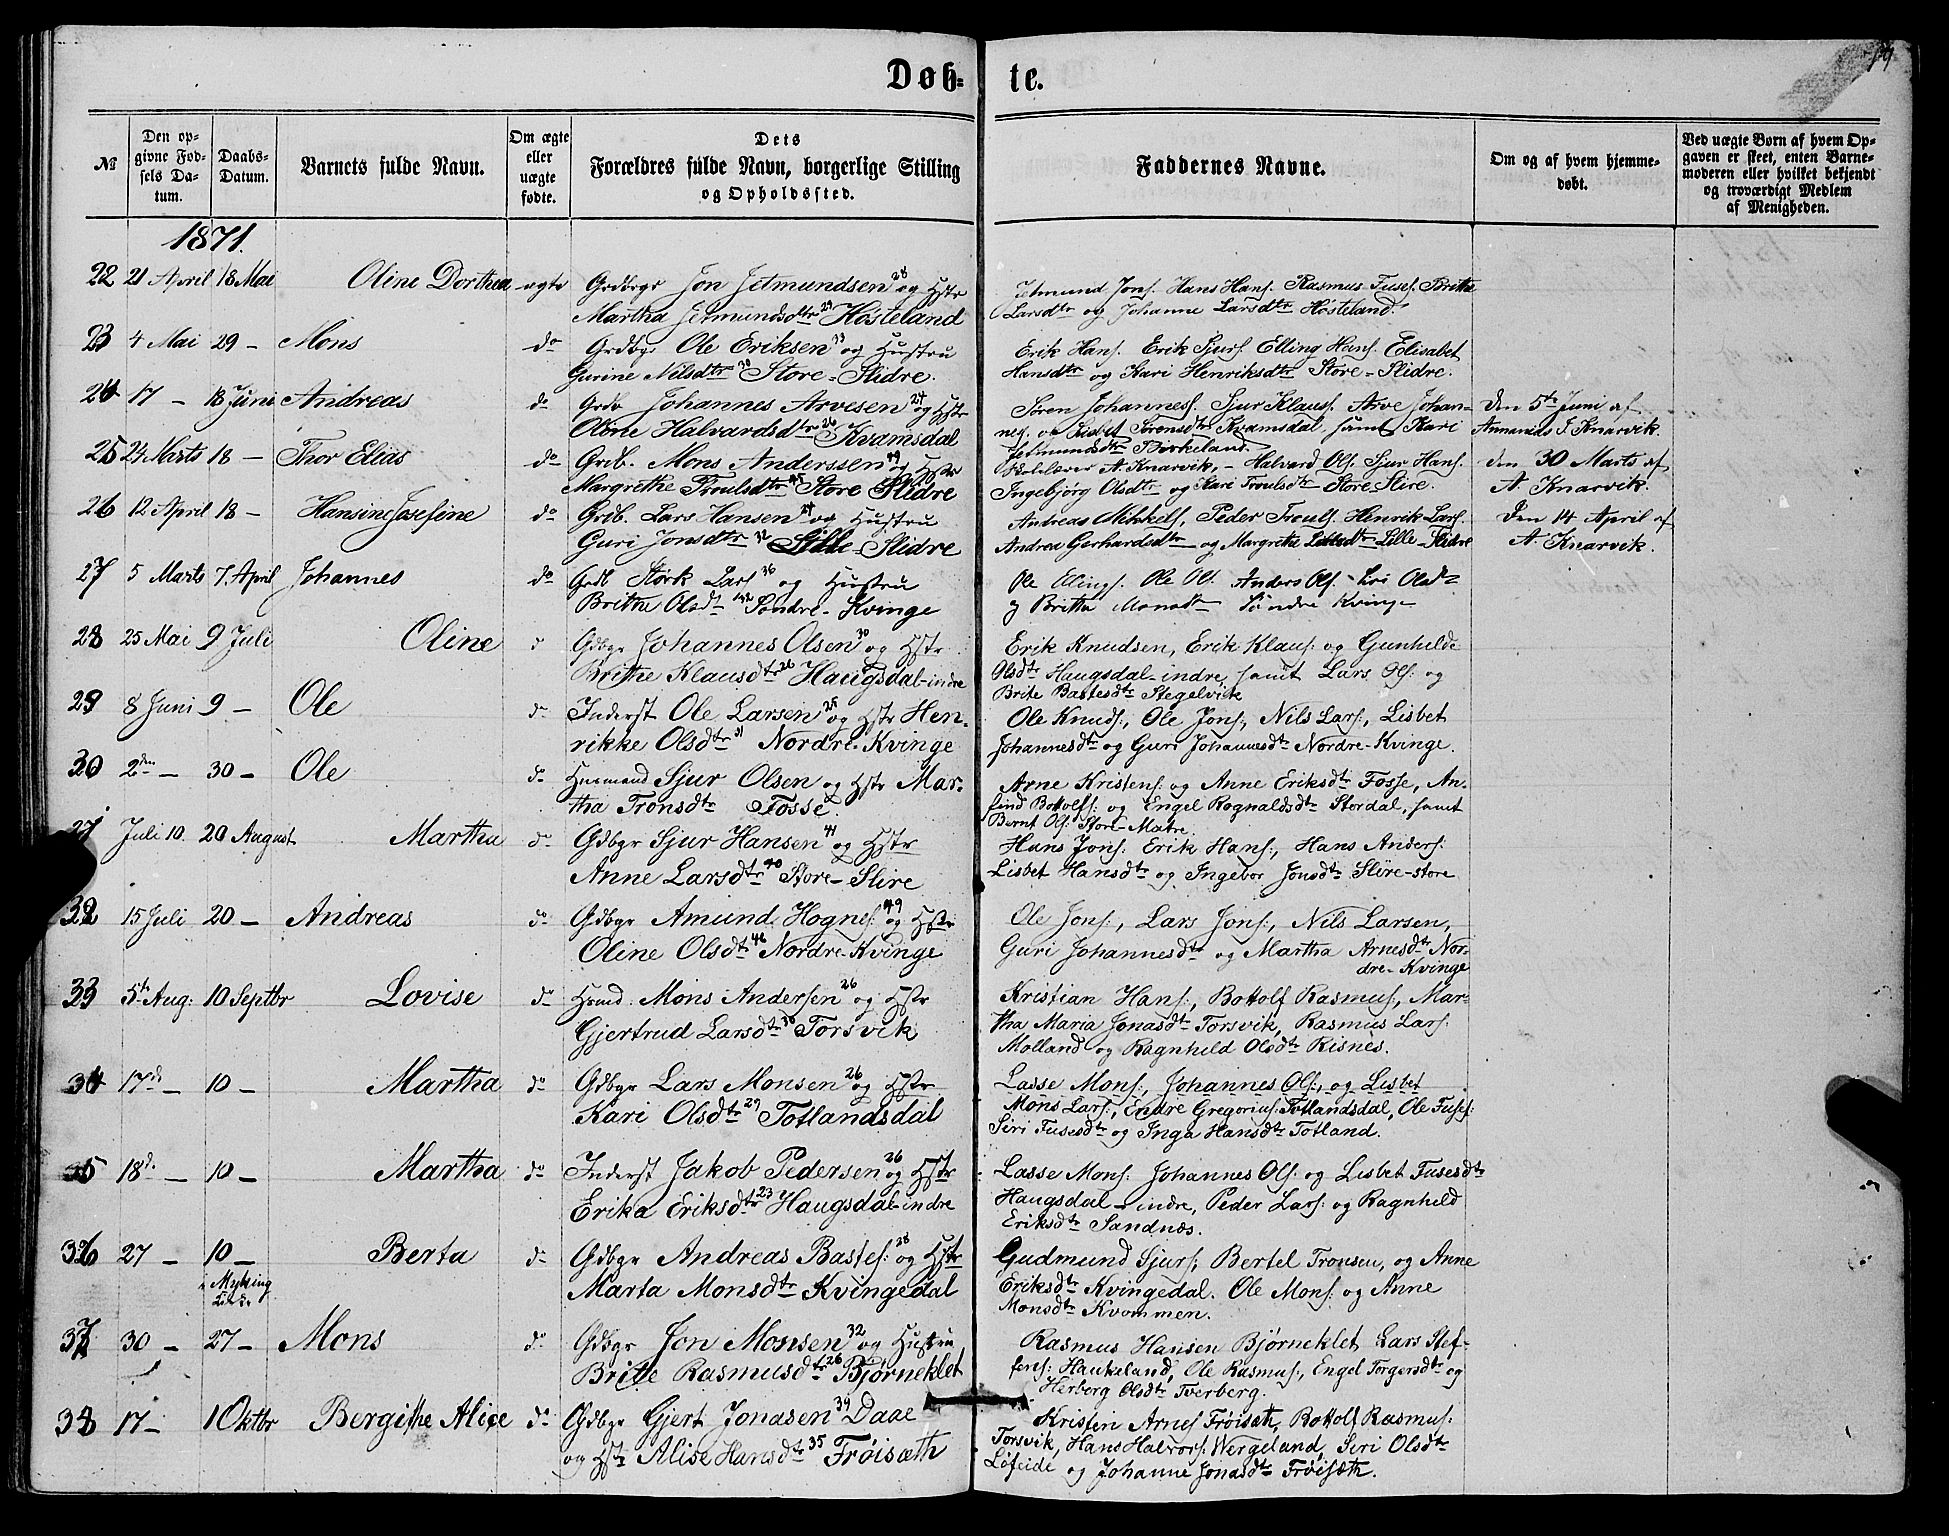 Døb-
te.
19
№
Den op-
givne Fød-
sels Da-
tum.
Daabs-
Datum.
Barnets fulde Navn.
Om ægte
eller
uægte
fødte.
Dets
Forældres fulde Navn, borgerlige Stilling
og Opholdssted.
Faddernes Navne.
Om og af hvem hjemme-
døbt.
Ved uægte Børn af hvem Op-
gaven er skeet, enten Barne-
moderen eller hvilket bekjendt
og troværdigt Medlem
af Menigheden.
1871.
22 21 April 18 Mai Oline Dorthea ægte Grdbrgr Jon Jetmundsen 28 og Hstr
Martha Jetmundsdtr 29 Høsteland
Jetmund Jons. Hans Hans. Rasmus Fuses. Brithe
Larsdtr og Johanne Larsdtr Høsteland.
23 4 Mai 29 – Mons do Grdbgr Ole Eriksen 33 og Hustru
Gurine Nilsdtr 30 Store-Slidre.
Erik Hans. Erik Sjurs. Elling Hans. Elisabet
Hansdtr og Kari Henriksdtr Store-Slidre.
24 17 – 18 Juni Andreas do Grdb Johannes Arvesen 27 og Hstr
Oline Halvardsdtr 26 Kvamsdal
Søren Johanness. Sjur Klaus. Arve Johan-
nes. og Lisbet Sørensdtr Kvamsdal samt Kari
Jetmundsdtr Birkeland
Den 5te Juni af
Amanids J. Knarvik.
25 24 Marts 18 – Thor Elias do Grdb. Mons Anderssen 49 og Hstr
Margrethe Troulsdtr 45 Store Slidre
Skolelærer A. Knarvik, – Halvard Ols. Sjur Hans.
Ingebjørg Olsdtr og Kari Troulsdtr Store-Slire.
den 30 Marts af
A Knarvik.
26 12 April 18 – Hansine Josefine do Grdb. Lars Hansen 27 og Hustru
Guri Jonsdtr 32 Lille-Slidre
Andreas Mikkels, Peder Trouls. Henrik Lars.
Andrea Gerhardsdtr og Margrethe Lille-Slidre
Den 14 April af
A. Knarvik.
27 5 Marts 7. April Johannes do Grdb Størk Lars 36 og Hustru
Brithe Olsdtr 42 Søndre-Kvinge
Ole Ellings. Ole Ols. Anders Ols – Olsdtr
og Britta Monsdtr Søndre Kvinge
28 25 Mai 9 Juli Oline d Gdbgr Johannes Olsen 30 og Hstr
Brithe Klausdtr 26 Haugsdal-indre
Erik Knudsen, Erik Klaus: og Gunhilde
Olsdtr Haugsdal-indre, samt Lars Ols: og
Brite Bastesdtr Stegelvik
29 8 Juni 9 – Ole do Inderst Ole Larsen 25 og Hstr Hen-
rikke Olsdtr 31 Nordre-Kvinge
Ole Knuds:, Ole Jons:, Nils Lars:, Lisbet
Johannesdtr og Guri Johannesdtr Nordre-Kvinge.
30 2den – 30 – Ole do Husmand Sjur Olsen og Hstr Mar-
tha Tronsdtr Fosse.
Arne Kristens: og Anne Eriksdtr Fosse, An-
find Bottolfs: og Engel Ragnaldsdtr Stordal, samt
Bernt Ols: Store-Matre.
Juli 10. 20 August Martha do Gdbgr Sjur Hansen 41 og Hstr
Anne Larsdtr 40 Store-Slire
Hans Jons: Erik Hans:, Hans Anders:
Lisbet Hansdtr og Ingebor Jonsdtr Slire-store
32 15 Juli 20 – Andreas do Gdbgr Amund Hognes: 49 og Hstr
Oline Olsdtr 46 Nordre-Kvinge
Ole Jons:, Lars Jons:, Nils Larsen,
Guri Johannesdtr og Martha Arnesdtr Nor-
dre-Kvinge
33 5te Aug: 10 Septbr Lovise do Hsmd. Mons Andersen 26 og Hstr
Gjertrud Larsdtr 36 Torsvik
Kristian Hans:, Bottolf Rasmus:, Mar-
tha Maria Jonasdtr Torsvik, Rasmus Lars:
Molland og Ragnhild Olsdtr Risnes.
34 17de – 10 – Martha do Gdbgr Lars Monsen 26 og Hstr
Kari Olsdtr 29 Totlandsdal
Lasse Mons:, Johannes Ols:, og Lisbet
Mons Lars:, Endre Gregorius: Totlandsdal, Ole Fuses:
Siri Fusesdtr og Inga Hansdtr Totland.
35 18de – 10 – Martha do Inderst Jakob Pedersen 26 og Hstr
Erika Eriksdtr 23 Haugsdal-indre
Lasse Mons: Johannes Ols: og Lisbet Fusesdtr
Haugsdal-indre, Peder Lars: og Ragnhild
Eriksdtr Sandnæs.
36 27 – 10 – Berta do Gdbgr Andreas Bastes: 28 og Hstr
Marta Monsdtr Kvingedal
Gudmund Sjurs:, Bertel Tronsen, og Anne
Eriksdtr Kvingedal. Ole Mons: og Anne
Monsdtr Kvammen.
i Myking
Kirke
37 30 – 27 – Mons do Gdbgr Jon Monsen 32 og Hustru
Brite Rasmusdtr 26 Bjørneklet
Rasmus Hansen Bjørneklet Lars Stef-
fens: Haukeland, Ole Rasmus:, Engel Torgersdtr og
Herborg Olsdtr Tverberg.
38 17 – 1 Oktbr Bergithe Alise do Gdbgr Gjert Jonasen 39 Daae
og Hstr Alise Hansdtr 35 Frøisæth
Kristen Arnes Frøisæth, Bottolf Rasmus:
Torsvik, Hans Halvors: Wergeland, Siri Olsdtr
Løfeide og Johanne Jonasdtr Frøisæth.